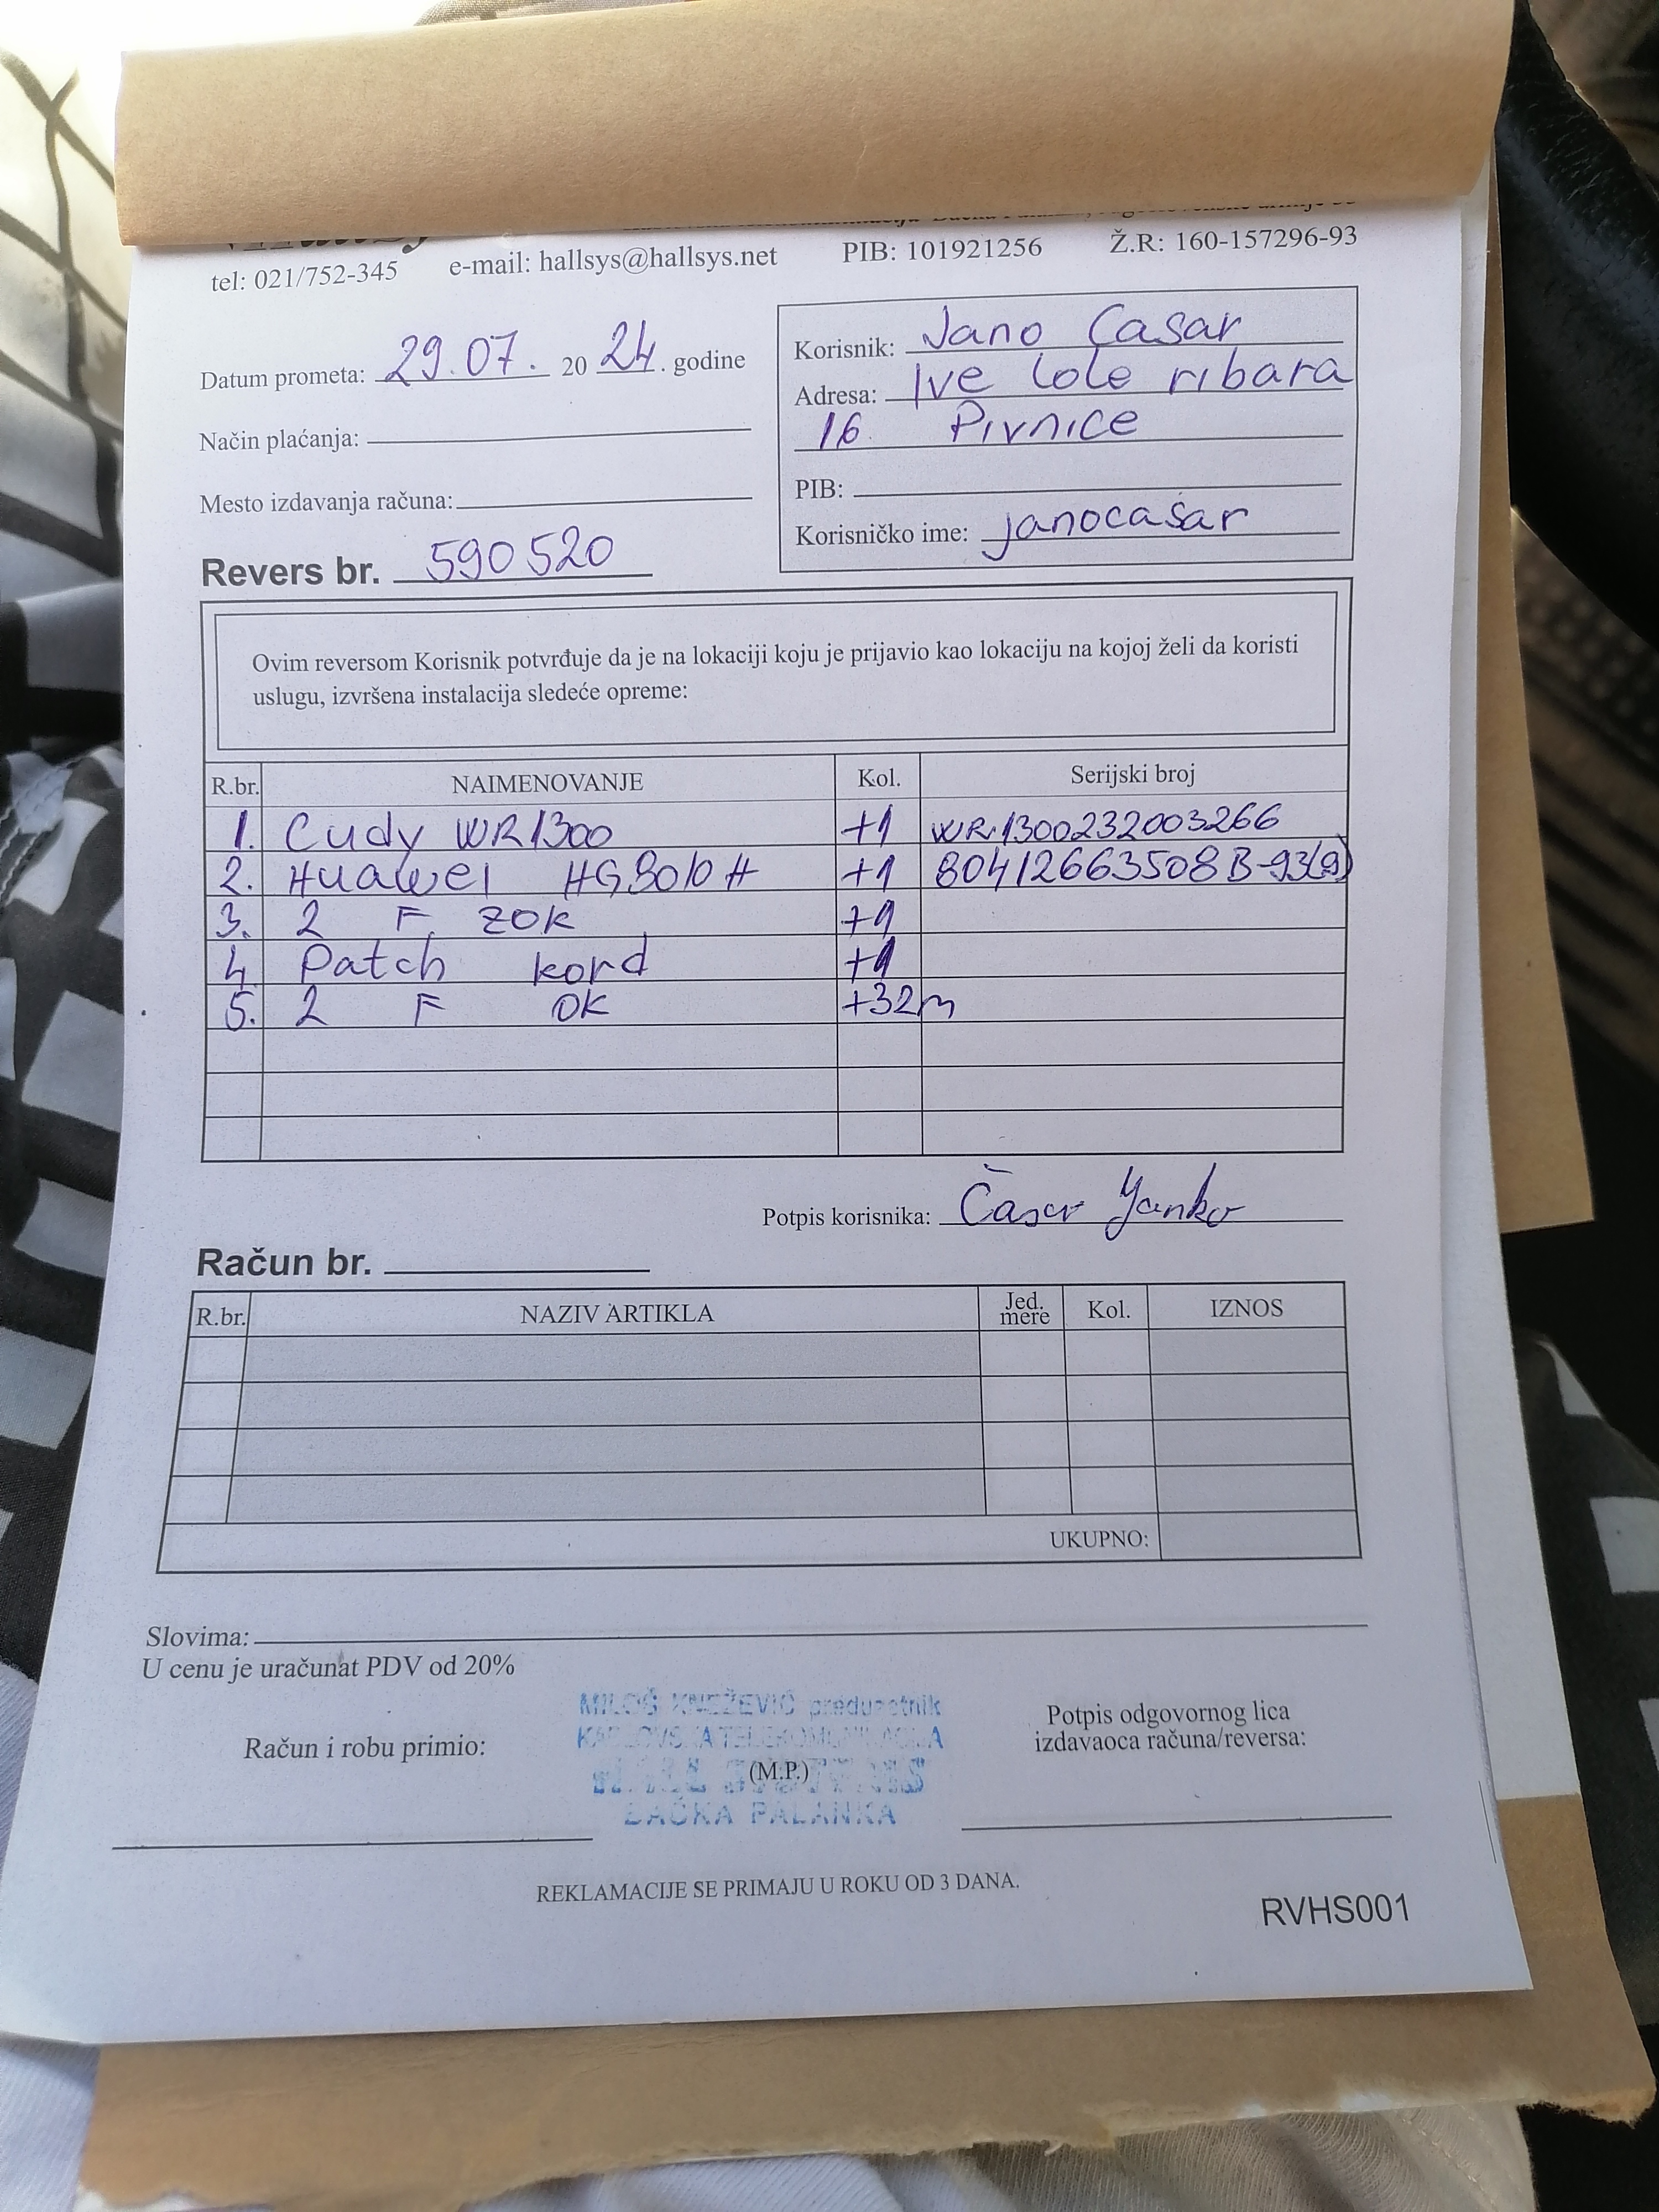 tel: 021/752-345 e-mail: hallsys@hallsys.net PIB: 101921256 Ž.R: 160-157296-93
Datum prometa: 29.07. 20 24. godine
Način plaćanja:
Mesto izdavanja računa:
Revers br. 590520
Korisnik: Jano Casar
Adresa: Ive lole ribara
16 Pivnice
PIB:
Korisničko ime: janocasar
Ovim reversom Korisnik potvrđuje da je na lokaciji koju je prijavio kao lokaciju na kojoj želi da koristi
uslugu, izvršena instalacija sledeće opreme:
R.br. NAIMENOVANJE Kol. Serijski broj
1. Cudy WR1300 +1 WR1300232003266
2. Huawei HG8010H +1 80412663508B-93(9)
3. 2 F ZOK +1
4. Patch kord +1
5. 2 F OK +32m
Potpis korisnika: Časar Janko
Račun br.
R.br. NAZIV ARTIKLA Jed. mere Kol. IZNOS
UKUPNO:
Slovima:
U cenu je uračunat PDV od 20%
Račun i robu primio:
MILOŠ KNEŽEVIĆ preduzetnik
(M.P.)
BAČKA PALANKA
Potpis odgovornog lica
izdavaoca računa/reversa:
REKLAMACIJE SE PRIMAJU U ROKU OD 3 DANA.
RVHS001